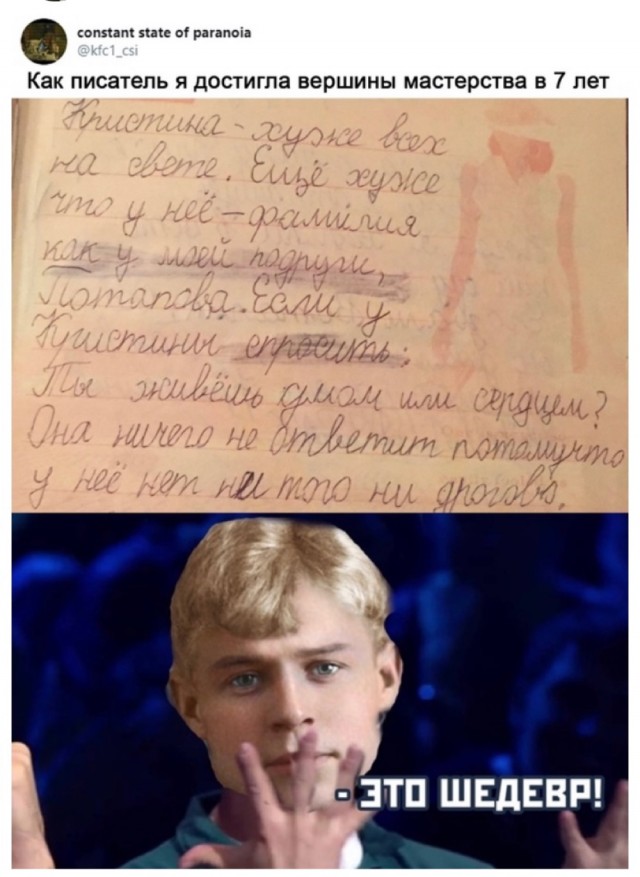 constant state of paranoia
@kfc1_csi
Как писатель я достигла вершины мастерства в 7 лет
Кристина - хуже всех
на свете. Ещё хуже
что у неё - фамилия
как у моей подруги,
Потапова. Если у
Кристины спросить:
Ты живёшь умом или сердцем?
Она ничего не ответит потомучто
у неё нет ни того ни дрогова.
- ЭТО ШЕДЕВР!